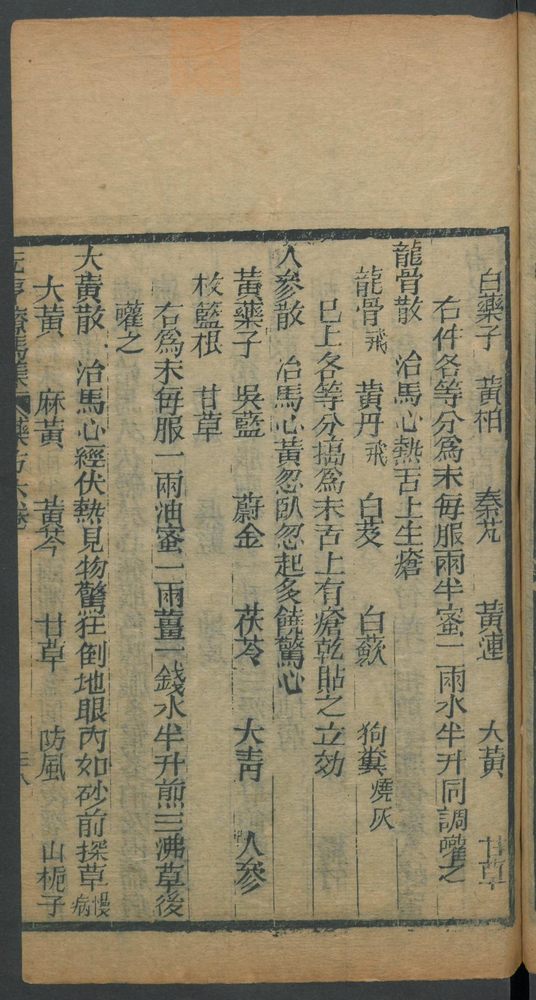 白藥子 黃柏 秦艽 黃連 大黃 甘草
右件各等分爲末每服兩半蜜一兩水半升同調灌之
龍骨散 治馬心熱舌上生瘡
龍骨飛 黃丹飛 白芨 白蘞 狗糞燒灰
已上各等分搗爲末舌上有瘡乾貼之立効
人參散 治馬心黃忽臥忽起多饒驚心
黃藥子 吳藍 蔚金 茯苓 大青 人參
板籃根 甘草
右爲末每服一兩油蜜一兩薑一錢水半升煎三沸草後
灌之
大黃散 治馬心經伏熱見物驚狂倒地眼內如砂前探草慢病
大黃 麻黃 黃芩 甘草 防風 山梔子
元亨療馬集 藥方六卷